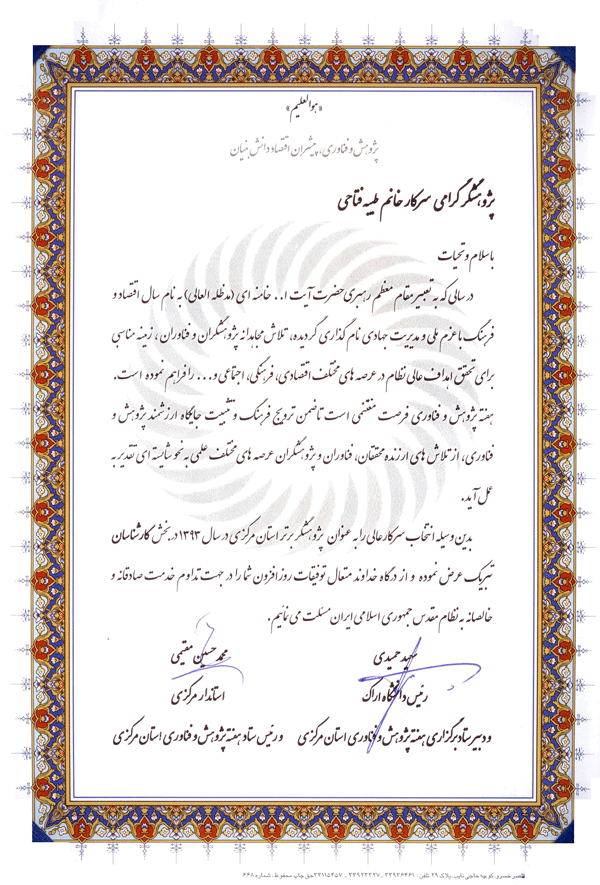 «هوالعلیم»
پژوهش و فناوری، پیشران اقتصاد دانش بنیان
پژوهشگر گرامی سرکار خانم طیبه فتاحی
با سلام و تحیات
در سالی که به تعبیر مقام معظم رهبری حضرت آیت ا... خامنه ای (مدظله العالی) به نام سال اقتصاد و
فرهنگ با عزم ملی و مدیریت جهادی نام گذاری گردیده، تلاش مجاهدانه پژوهشگران و فناوران، زمینه مناسبی
برای تحقق اهداف عالی نظام در عرصه های مختلف اقتصادی، فرهنگی، اجتماعی و... را فراهم نموده است.
هفته پژوهش و فناوری فرصت مغتنمی است تا ضمن ترویج فرهنگ و تثبیت جایگاه ارزشمند پژوهش و
فناوری، از تلاش های ارزنده محققان، فناوران و پژوهشگران عرصه های مختلف علمی به نحو شایسته ای تقدیر به
عمل آید.
بدین وسیله انتخاب سرکارعالی را به عنوان پژوهشگر برتر استان مرکزی در سال ۱۳۹۳ در بخش کارشناسان
تبریک عرض نموده و از درگاه خداوند متعال توفیقات روزافزون شما را در جهت تداوم خدمت صادقانه و
خالصانه به نظام مقدس جمهوری اسلامی ایران مسئلت می نمائیم.
سعید حمیدی
رئیس دانشگاه اراک
و دبیر ستاد برگزاری هفته پژوهش و فناوری استان مرکزی
محمد حسین مقیمی
استاندار مرکزی
و رئیس ستاد هفته پژوهش و فناوری استان مرکزی
ناصر خسرو، کوچه حاجی نایب، پلاک ۲۹ تلفن: ۳۳۹۳۶۴۶۱ ـ ۳۳۹۲۳۳۲۷ ـ ۳۳۱۱۵۴۵۷ حق چاپ محفوظ. شماره ۶۶۸